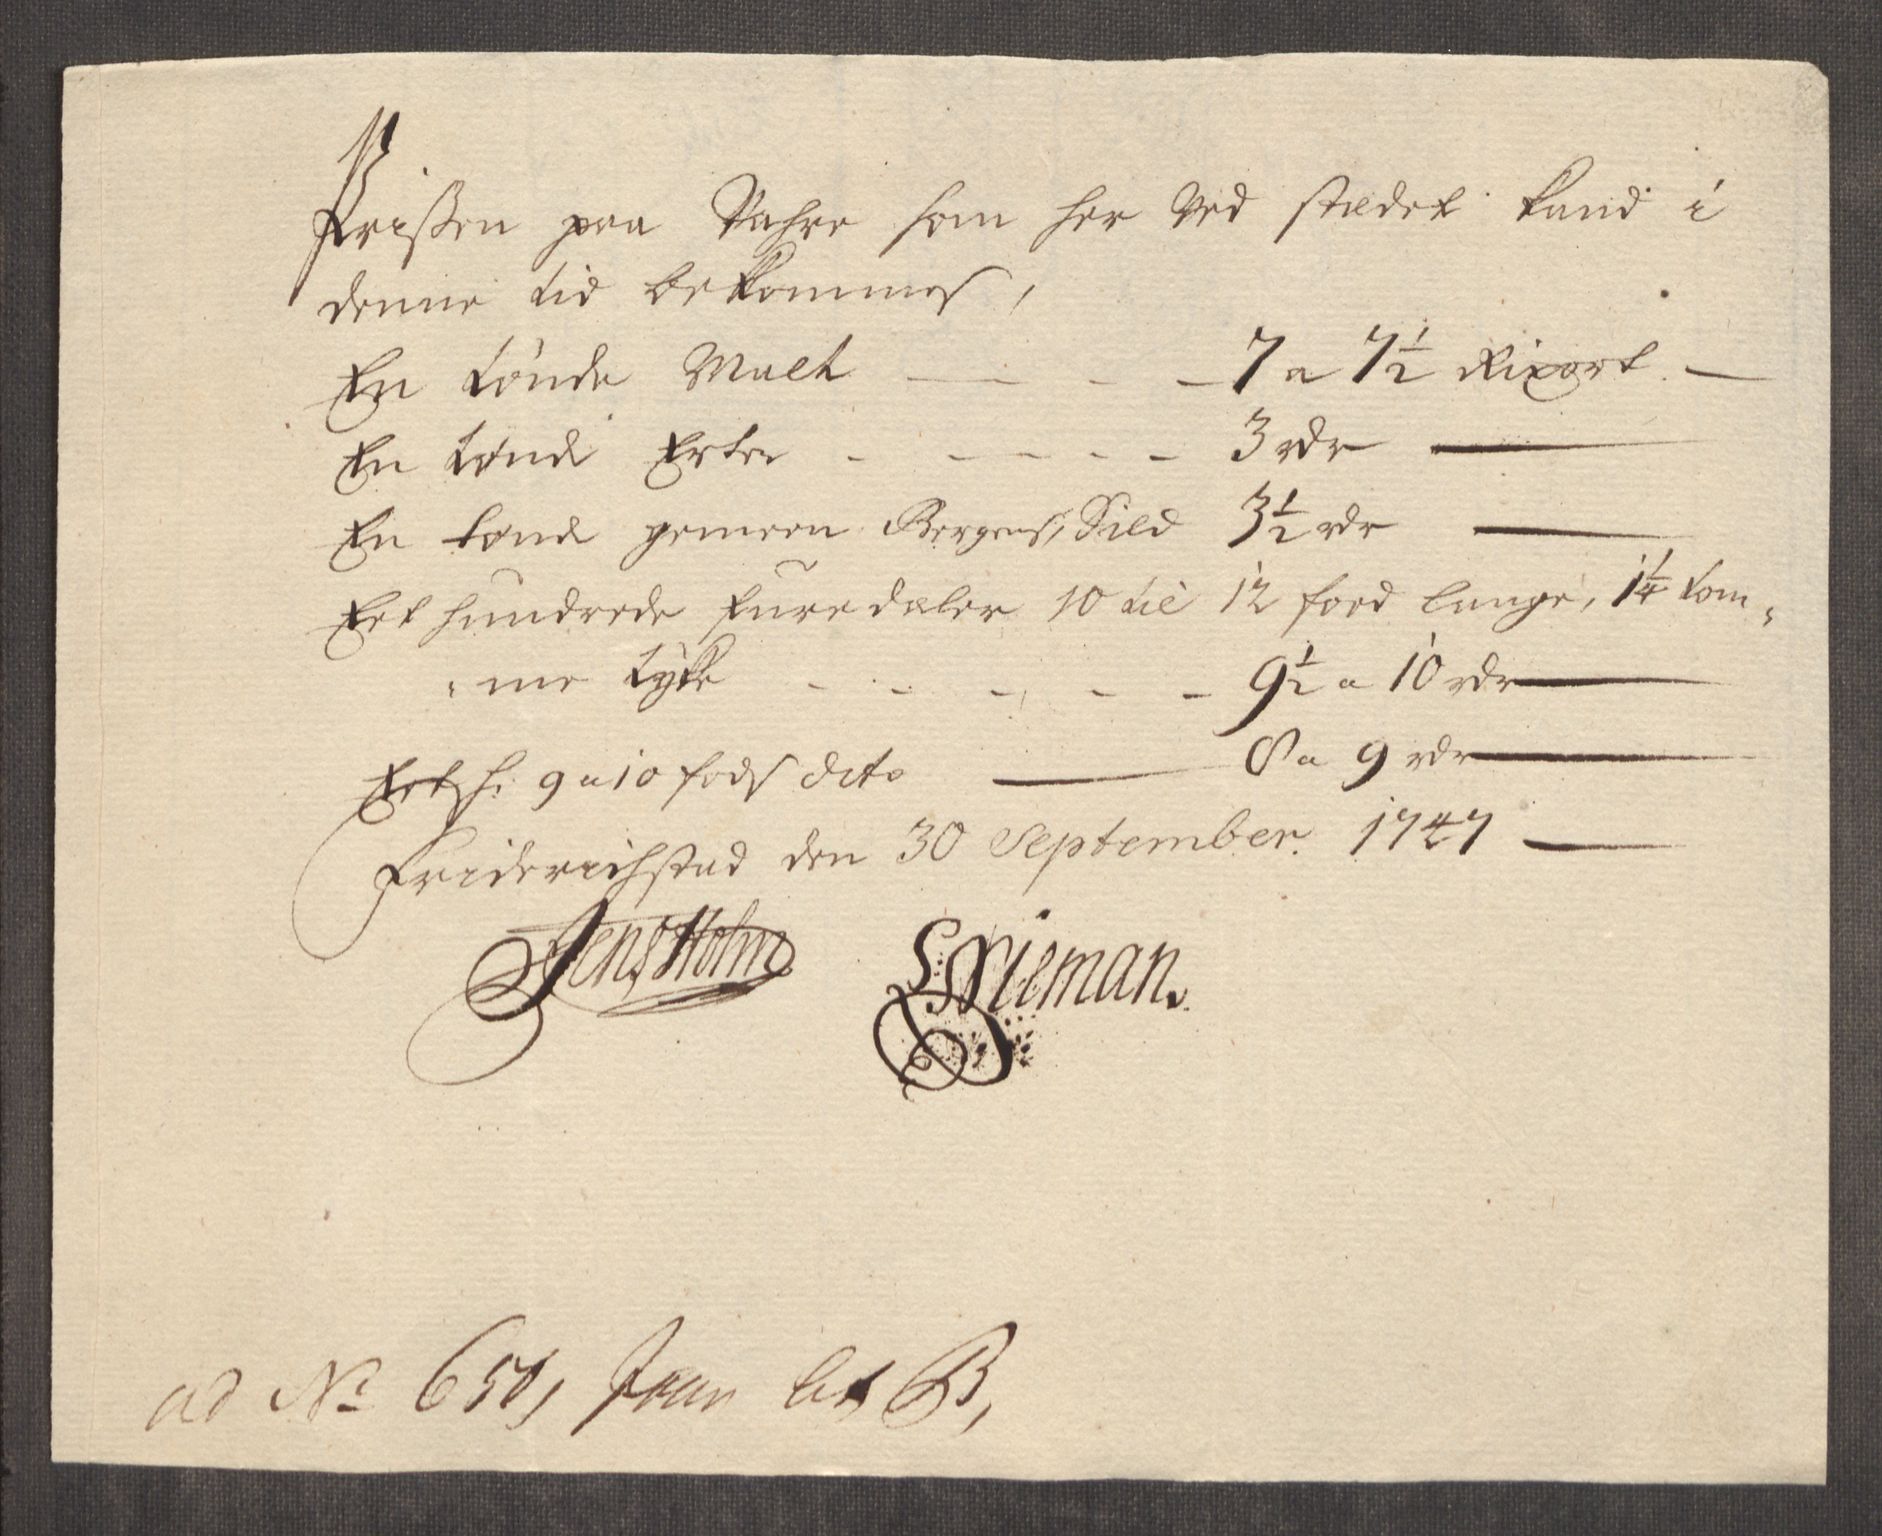 Prissen paa Vahre som her ved stædet kand i
denne tid bekommes,
En tønde Malt - - - - 7 a 7½ Rixort. -
En tønde Erter - - - - - 3 rdr -
En tønde gemeen Bergens, Sild 3½ rdr -
Eet hundrede furre dæler 10 til 12 foed lange, 1¼ tom-
me tyke - - - - - 9½ a 10 rdr -
Eet h: 9 a 10 fods dito - 8 a 9 rdr -
Friderichstad den 30 September 1747 -
Jens Holm S: Nieman.
ad No 650, Litr B,